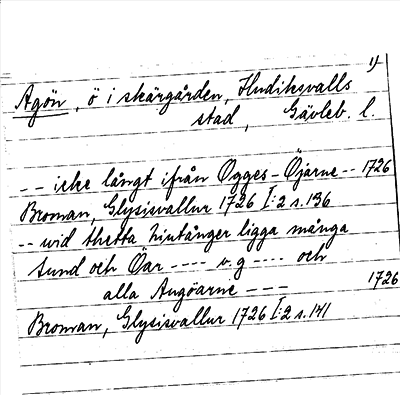 1)
Agön, ö i skärgården, Hudiksvalls
stad, Gävleb. l.
-- icke långt ifrån Ogges-Öjarne -- 1726
Broman, Glysisvallur 1726 I:2 s. 136
-- wid thetta hintånger ligga många
sund och Öar ---- v. g ---- och
alla Angöarne --- 1726
Broman, Glysisvallur 1726 I:2 s. 141